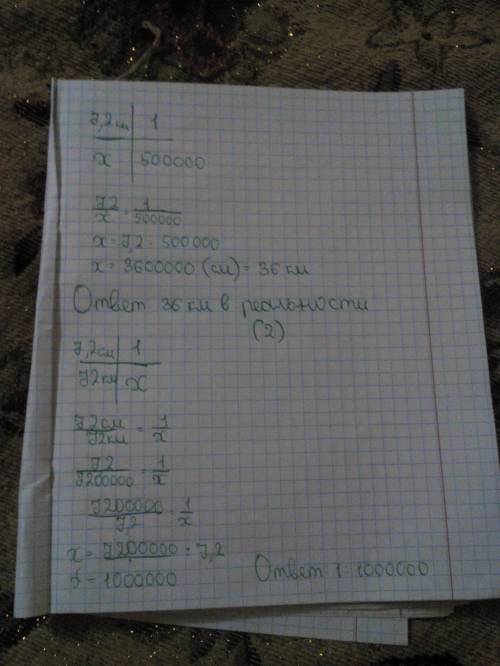 7,2 см | 1
x | 500000
7,2/x = 1/500000
x = 7,2 · 500000
x = 3600000 (см) = 36 км
Ответ 36 км в реальности
(2)
7,2 см | 1
72 км | x
7,2 см/72 км = 1/x
7,2/7200000 = 1/x
7200000/7,2 = 1/x
x = 7200000 : 7,2
x = 1000000
Ответ 1 : 1000000